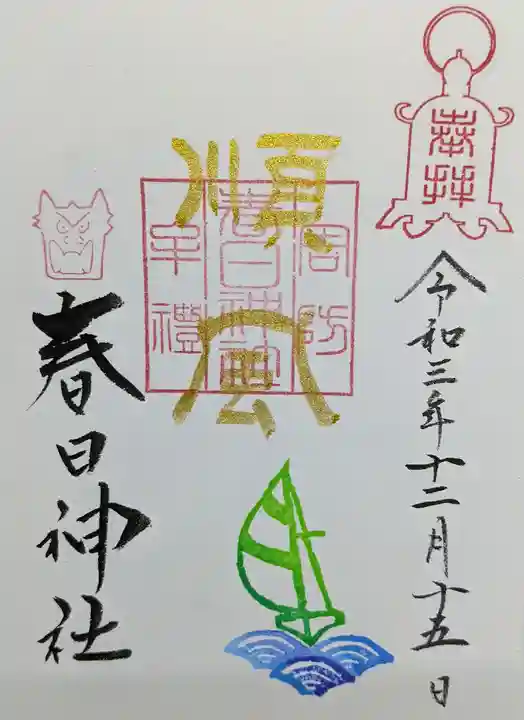 奉拝
令和三年十二月十五日
順風
周防
春日神社
牟禮
春日神社